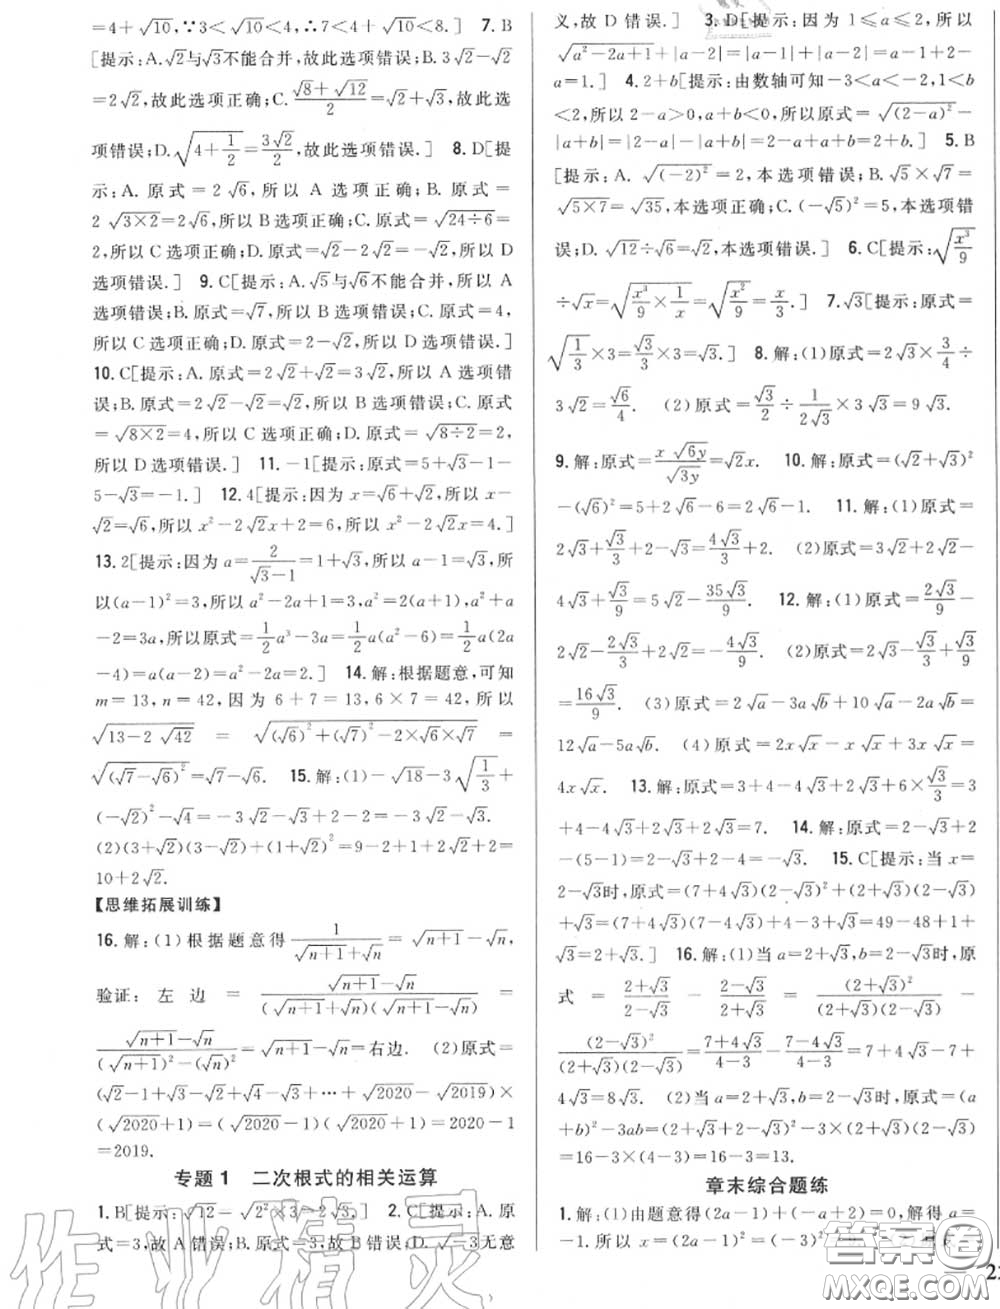 =4+√10,∵3<√10<4,∴7<4+√10<8.] 7. B
[提示:A.√2与√3不能合并,故此选项错误;B.3√2-√2=
2√2,故此选项正确;C.(√8+√12)/2=√2+√3,故此选
项错误;D.√(4+1/2)=3√2/2,故此选项错误.] 8. D[提
示:A. 原式=2√6,所以 A 选项正确;B. 原式=
2√(3×2)=2√6,所以B选项正确;C. 原式=√(24÷6)=
2,所以C选项正确;D. 原式=√2-2√2=-√2,所以 D
选项错误.] 9. C[提示:A.√5与√6不能合并,所以 A
选项错误;B. 原式=√7,所以B选项错误;C. 原式=4,
所以 C 选项正确;D. 原式=2-√2,所以 D 选项错误.]
10. C[提示:A. 原式=2√2+√2=3√2,所以A选项错
误;B. 原式=2√2-√2=√2,所以B选项错误;C. 原式
=√(8×2)=4,所以C选项正确;D. 原式=√(8÷2)=2,所
以 D 选项错误.] 11. -1[提示:原式=5+√3-1-
5-√3=-1.] 12. 4[提示:因为x=√6+√2,所以x-
√2=√6,所以x²-2√2x+2=6,所以x²-2√2x=4.]
13. 2[提示:因为a=2/(√3-1)=1+√3,所以a-1=√3,所
以(a-1)²=3,所以a²-2a+1=3,a²=2(a+1),a²+a
-2=3a,所以原式=1/2a³-3a=1/2a(a²-6)=1/2a(2a
-4)=a(a-2)=a²-2a=2.] 14. 解:根据题意,可知
m=13,n=42,因为 6+7=13,6×7=42,所以
√(13-2√42) = √((√6)²+(√7)²-2×√6×√7) =
√((√7-√6)²)=√7-√6. 15. 解:(1)-√18-3√(1/3)+
(-√2)²-√4=-3√2-√3+2-2=-3√2-√3.
(2)(3+√2)(3-√2)+(1+√2)²=9-2+1+2√2+2=
10+2√2.
【思维拓展训练】
16. 解:(1)根据题意得1/(√(n+1)+√n)=√(n+1)-√n,
验证: 左 边 = (√(n+1)-√n)/((√(n+1)+√n)(√(n+1)-√n)) =
(√(n+1)-√n)/((√(n+1))²-(√n)²)=√(n+1)-√n=右边. (2)原式=
(√2-1+√3-√2+√4-√3+⋯+√2020-√2019)×
(√2020+1)=(√2020-1)(√2020+1)=2020-1
=2019.
专题1 二次根式的相关运算
1. B[提示:√12-√(2²×3)=2√3.] 2. C[提示:A. 原
式=3,故 A 错误;B. 原式=3,故B错误;D.√-3无意
义,故 D 错误.] 3. D[提示:因为 1≤a≤2,所以
√(a²-2a+1)+|a-2|=|a-1|+|a-2|=a-1+2-
a=1.] 4. 2+b[提示:由数轴可知-3<a<-2,1<b
<2,所以2-a>0,a+b<0,所以原式=√((2-a)²)-
|a+b|=|2-a|-|a+b|=2-a+a+b=2+b.] 5. B
[提示:A. √((-2)²)=2,本选项错误;B. √5×√7=
√(5×7)=√35,本选项正确;C.(-√5)²=5,本选项错
误;D. √12÷√6=√2,本选项错误.] 6. C[提示:√(x³/9)
÷√x=√(x³/9×1/x)=√(x²/9)=x/3.] 7. √3[提示:原式=
√(1/3)×3=√3/3×3=√3.] 8. 解:(1)原式=2√2×3/4÷
3√2=√6/4. (2)原式=√3/2÷1/(2√3)×3√3=9√3.
9. 解:原式=x√(6y)/√(3y)=√2x. 10. 解:原式=(√2+√3)²
-(√6)²=5+2√6-6=2√6-1. 11. 解:(1)原式=
2√3+√3/3+2-√3=4√3/3+2. (2)原式=3√2+2√2-
4√3+√3/9=5√2-35√3/9. 12. 解:(1)原式=2√3/9+
2√2-2√3/3+2-2√2=2-4√3/9. (2)原式=2√3-√3/3+√3/9
=16√3/9. (3)原式=2√a-3a√b+10√a-2a√b=
12√a-5a√b. (4)原式=2x√x-x√x+3x√x=
4x√x. 13. 解:原式=3+4-4√3+2√3+6×√3/3=3
+4-4√3+2√3+2√3=7. 14. 解:原式=2-√3+2
-(5-1)=2-√3+2-4=-√3. 15. C[提示:当x=
2-√3时,原式=(7+4√3)(2-√3)²+(2+√3)(2-√3)
+√3=(7+4√3)(7-4√3)+4-3+√3=49-48+1
+√3=2+√3.] 16. 解:(1)当a=2+√3,b=2-√3时,原
式 = (2+√3)/(2-√3) - (2-√3)/(2+√3) = (2+√3)²/((2+√3)(2-√3)) -
(2-√3)²/((2+√3)(2-√3))=(7+4√3)/(4-3)-(7-4√3)/(4-3)=7+4√3-7+
4√3=8√3. (2)当a=2+√3,b=2-√3时,原式=(a+
b)²-3ab=(2+√3+2-√3)²-3×(2+√3)(2-√3)
=16-3×(4-3)=16-3=13.
章末综合题练
1. 解:(1)由题意得(2a-1)+(-a+2)=0,解得a=
-1.所以x=(2a-1)²=(-2-1)²
作业精灵
答案圈
MXQE.COM